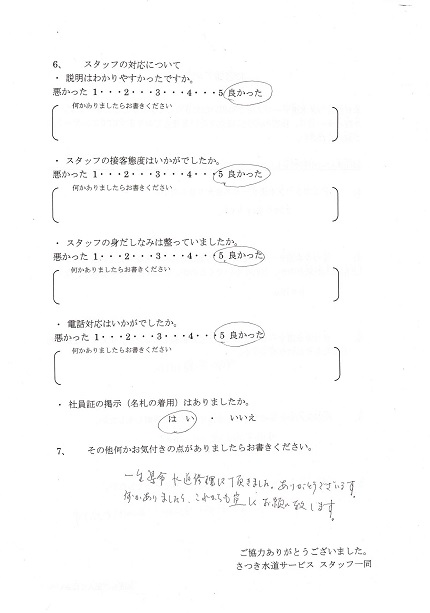 6、 スタッフの対応について
・ 説明はわかりやすかったですか。
悪かった 1・・・2・・・3・・・4・・・5 良かった
何かありましたらお書きください
・ スタッフの接客態度はいかがでしたか。
悪かった 1・・・2・・・3・・・4・・・5 良かった
何かありましたらお書きください
・ スタッフの身だしなみは整っていましたか。
悪かった 1・・・2・・・3・・・4・・・5 良かった
何かありましたらお書きください
・ 電話対応はいかがでしたか。
悪かった 1・・・2・・・3・・・4・・・5 良かった
何かありましたらお書きください
・ 社員証の掲示（名札の着用）はありましたか。
はい ・ いいえ
7、 その他何かお気付きの点がありましたらお書きください。
一生懸命 水道修理して頂きました。ありがとうございます。
何かありましたら、これからも宜しくお願い致します。
ご協力ありがとうございました。
さつき水道サービス スタッフ一同